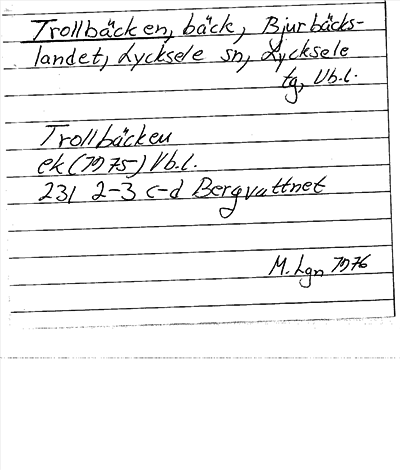 Trollbäcken, bäck, Bjurbäcks-
landet, Lycksele sn, Lycksele
tg, Vb.l.
Trollbäcken
ek (1975) Vb.l.
231 2-3 c-d Bergvattnet
M. Lgn 1976